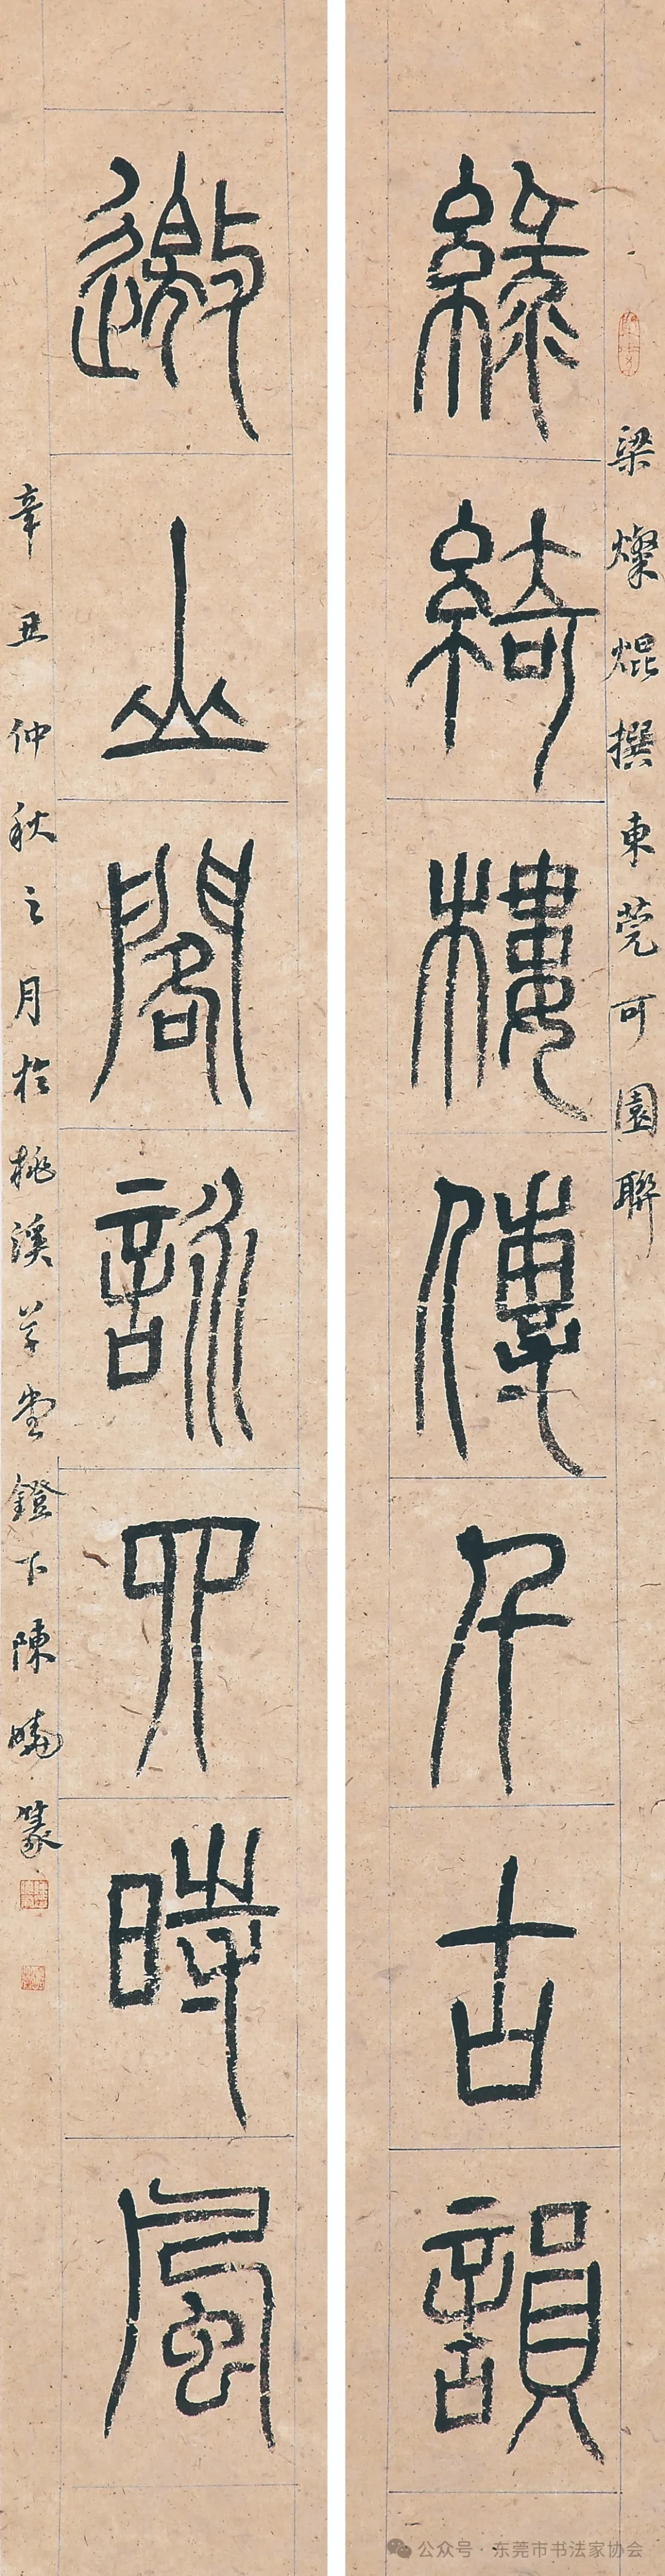 梁燦焜撰東莞可園聯
綠綺樓傳千古韻
邀山閣詠四時風
辛丑仲秋之月於桃溪草堂鐙下陳曉篆
公众号·东莞市书法家协会